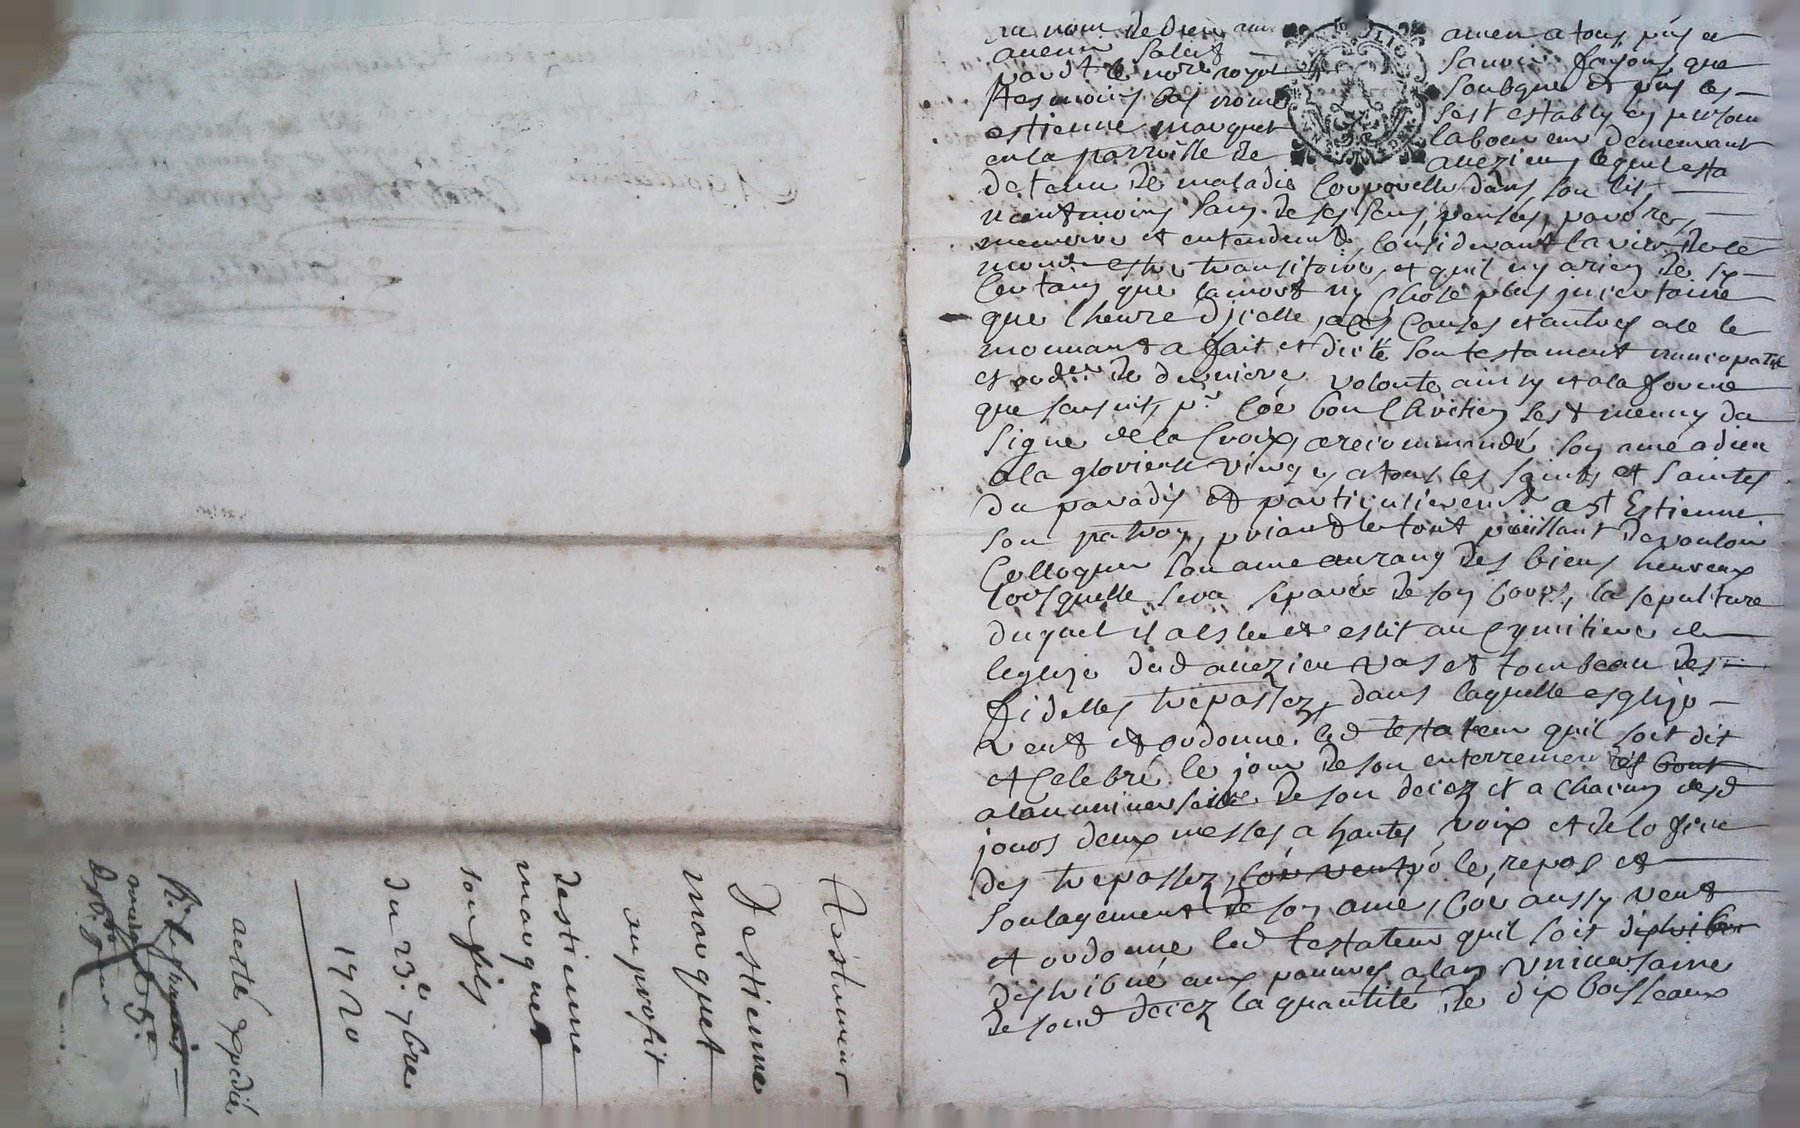 au nom de Dieu amen a tous pñs et
auenir salut scauoir faisons que
pardt le nore royal soubsigné et pñs les
tesmoins bas només sest estably en personne
estienne marquet laboureur demeurant
en la parroisse de auezieu lequel esta
detenu de maladie corporelle dans son lit
neantmoins sain de ses sens, pensées, parolle,
memoire et entendemt, considerant la vie de ce
monde estre transitoire, et quil ny a rien de sy
certain que la mort ny chose plus jncertaine
que lheure djcelle, a ces causes et autres ace le
mouuant a fait et dicté son testament nuncupatif
et ordce de derniere volonté ainsy et a la forme
que sensuit, pr cõe bon chritien sest muny du
signe de la Croix, a recommandé son ame a dieu
a la glorieuse vierge, a tous les saints et saintes
du paradis et particulierement a st Estienne
son patron, priant le tout puissant de vouloir
Colloquer son ame au rang des biens heureux
lorsquelle sera separée de son corps, la sepulture
duquel il a esleu et eslit au cymitiere de
leglize dud auezieu vas et tombeau des
fidelles trepassez, dans laquelle esglize
veut et ordonne led testateur quil soit dit
et celebré le jour de son enterrement et bout
a lanniuersaire de son decez et a chacun desd
jours deux messes a hautes voix et de lofice
des trepassez, põ le repos et
soulagement de son ame, cõe aussy veut
et ordonne led testateur quil soit distribué
distribué aux pauures a lan vniuersaire
de sond decez la quantité de dix boisseaux
Testament
destienne
marquet
au profit
destienne
marquet
son fils
du 23.e 7bre
1720
acte expedié